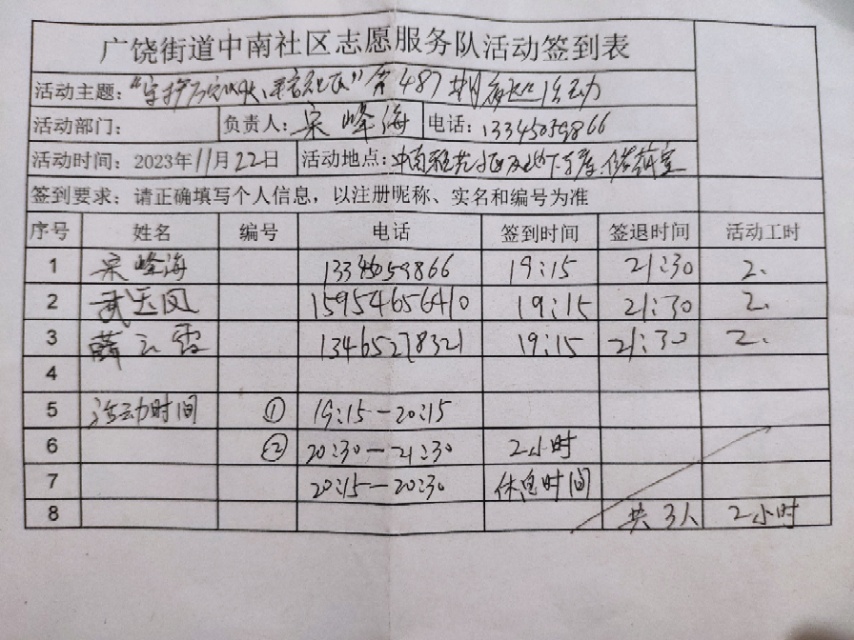 广饶街道中南社区志愿服务队活动签到表
活动主题：“守护 ”第487期夜巡活动
活动部门： 负责人：宋峰海 电话：13345059866
活动时间：2023年11月22日 活动地点：中南
签到要求：请正确填写个人信息，以注册昵称、实名和编号为准
序号 姓名 编号 电话 签到时间 签退时间 活动工时
1 宋峰海 13345059866 19:15 21:30 2.
2 武玉凤 15954656410 19:15 21:30 2.
3 薛云霞 13465278321 19:15 21:30 2.
4
5 活动时间 ① 19:15—20:15
6 ② 20:30—21:30 2小时
7 20:15—20:30 休息时间
8 共3人 2小时